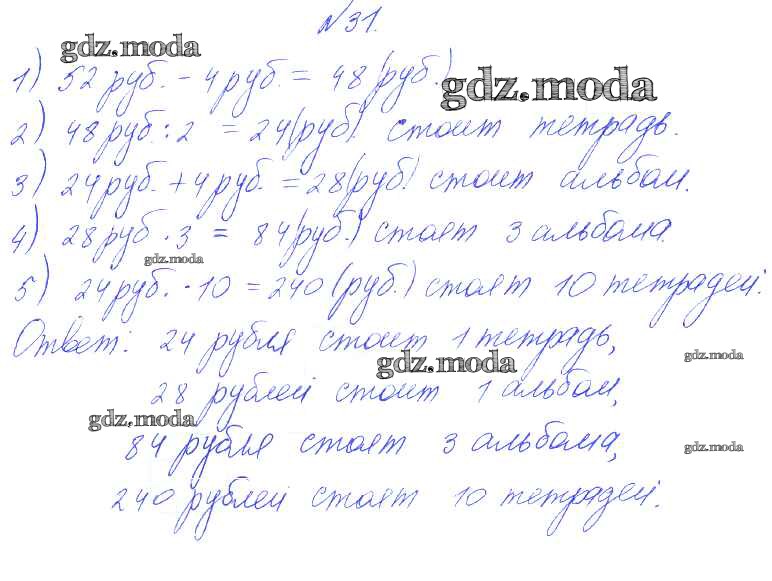 №31.
gdz.moda
1) 52 руб. - 4 руб. = 48 (руб.)
gdz.moda
2) 48 руб. : 2 = 24 (руб) стоит тетрадь.
3) 24 руб. + 4 руб. = 28 (руб.) стоит альбом.
4) 28 руб · 3 = 84 (руб.) стоят 3 альбома.
gdz.moda
5) 24 руб. · 10 = 240 (руб.) стоят 10 тетрадей.
Ответ: 24 рубля стоит 1 тетрадь,
gdz.moda gdz.moda
28 рублей стоит 1 альбом,
gdz.moda
84 рубля стоят 3 альбома,
gdz.moda
240 рублей стоят 10 тетрадей.